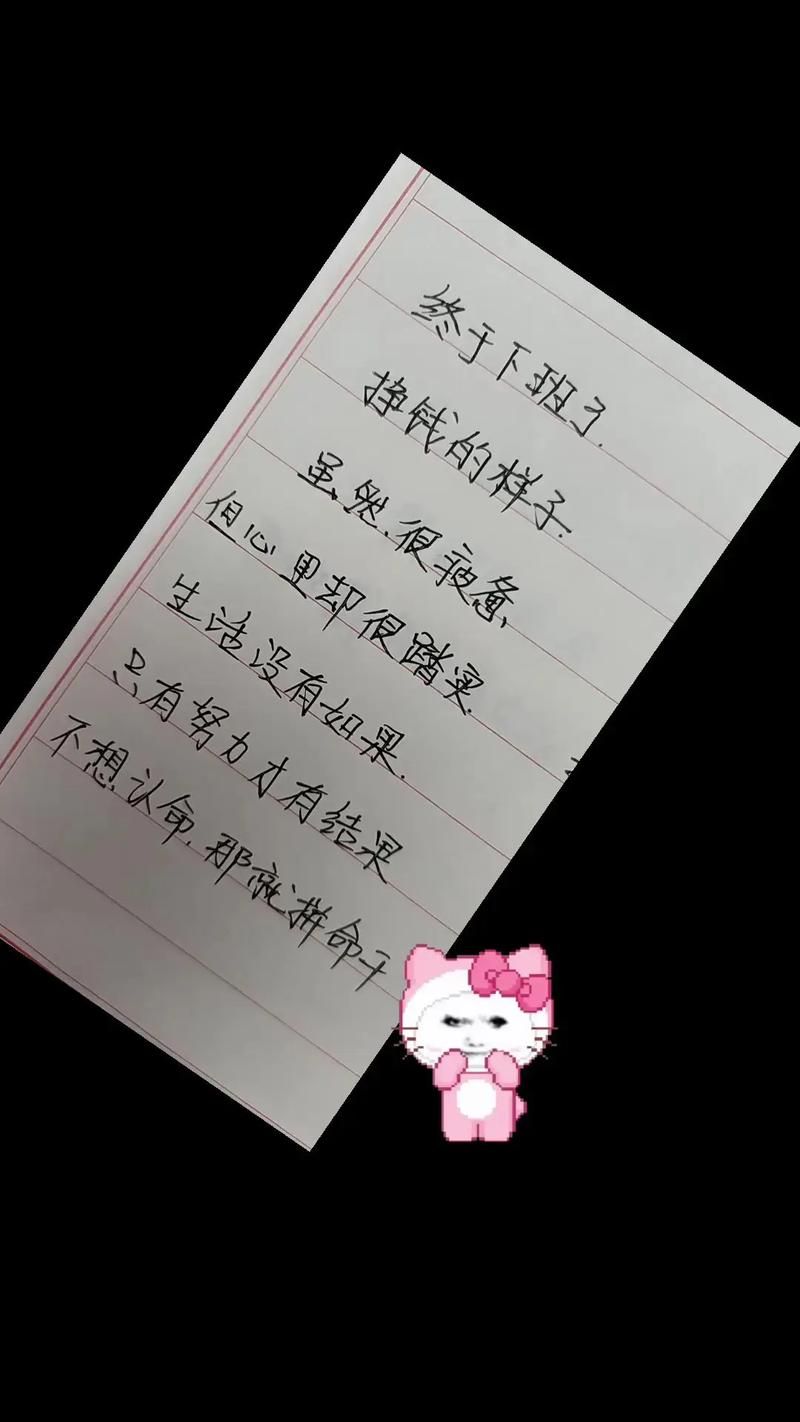 终于下班了.
挣钱的样子.
虽然很疲惫,
但心里却很踏实.
生活没有如果.
只有努力才有结果
不想认命.那就拼命干